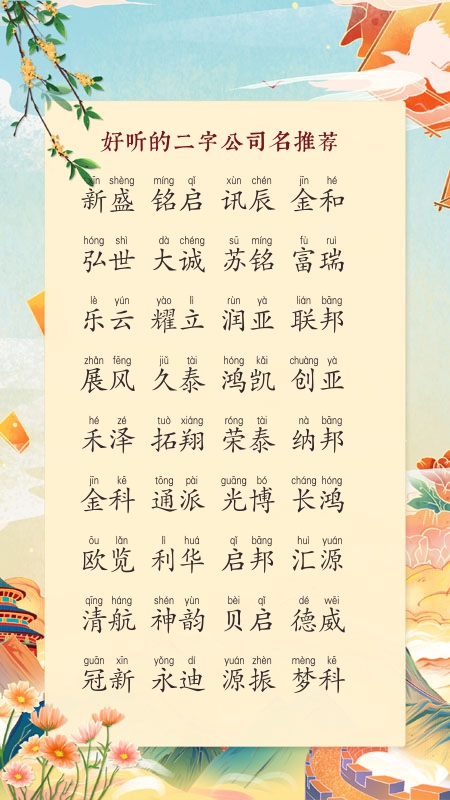 好听的二字公司名推荐
xīn shèng míng qǐ xùn chén jīn hé
新盛 铭启 讯辰 金和
hóng shì dà chéng sū míng fù ruì
弘世 大诚 苏铭 富瑞
lè yún yào lì rùn yà lián bāng
乐云 耀立 润亚 联邦
zhǎn fēng jiǔ tài hóng kǎi chuàng yà
展风 久泰 鸿凯 创亚
hé zé tuò xiáng róng tài nà bāng
禾泽 拓翔 荣泰 纳邦
jīn kē tōng pài guāng bó cháng hóng
金科 通派 光博 长鸿
ōu lǎn lì huá qǐ bāng huì yuán
欧览 利华 启邦 汇源
qīng háng shén yùn bèi qǐ dé wēi
清航 神韵 贝启 德威
guān xīn yǒng dí yuán zhèn mèng kē
冠新 永迪 源振 梦科